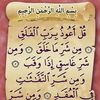 بِسْمِ اللَّهِ الرَّحْمَٰنِ الرَّحِيمِ
قُلْ أَعُوذُ بِرَبِّ الْفَلَقِ
مِن شَرِّ مَا خَلَقَ وَمِن
شَرِّ غَاسِقٍ إِذَا وَقَبَ
وَمِن شَرِّ النَّفَّاثَاتِ